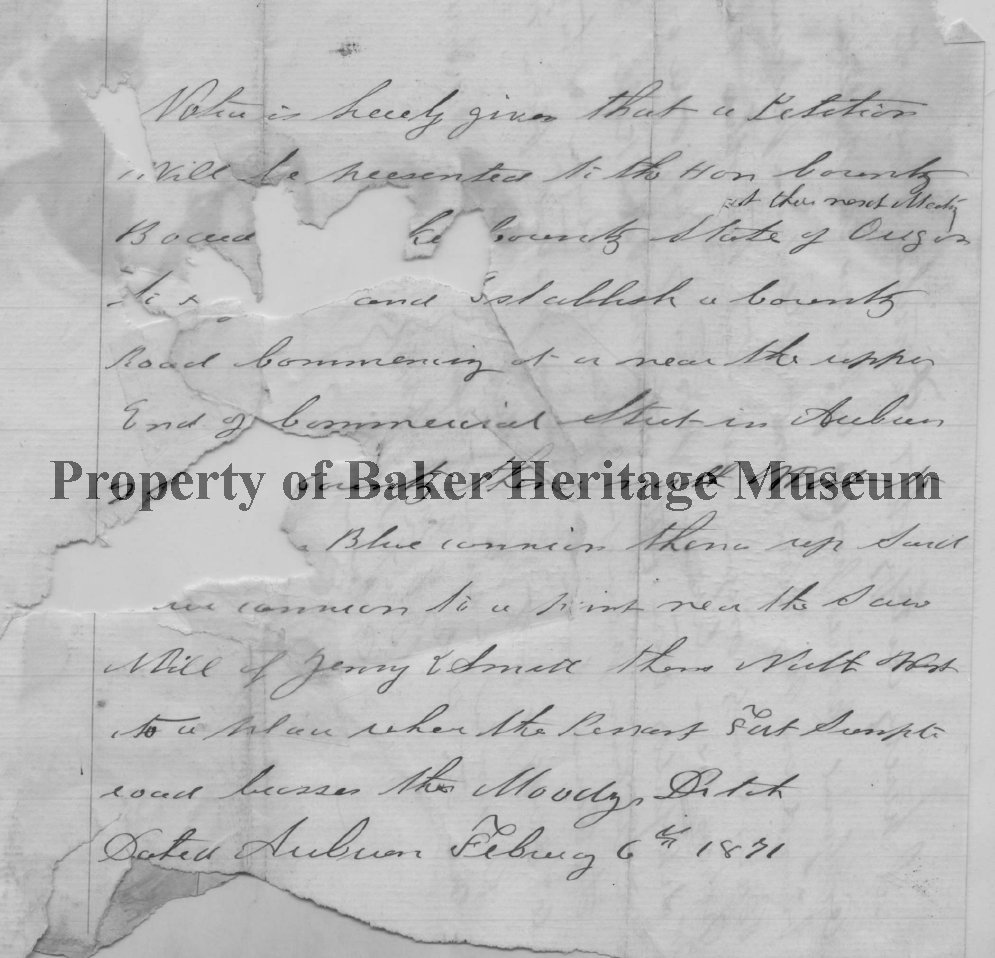 Notice is hereby given that a Petition
Will be presented to the Hon County
at their next Meeting
Board County State of Oregon
and Establish a County
Road Commencing at or near the upper
End of Commercial Street in Auburn
Property of Baker Heritage Museum
County thence
Blue cannion thence up said
cannion to a point near the Saw
Mill of Jenny & Small thence North West
to a place where the Present Fort Sumpter
road crosses the Moody Ditch
Dated Auburn Febuary 6th 1871